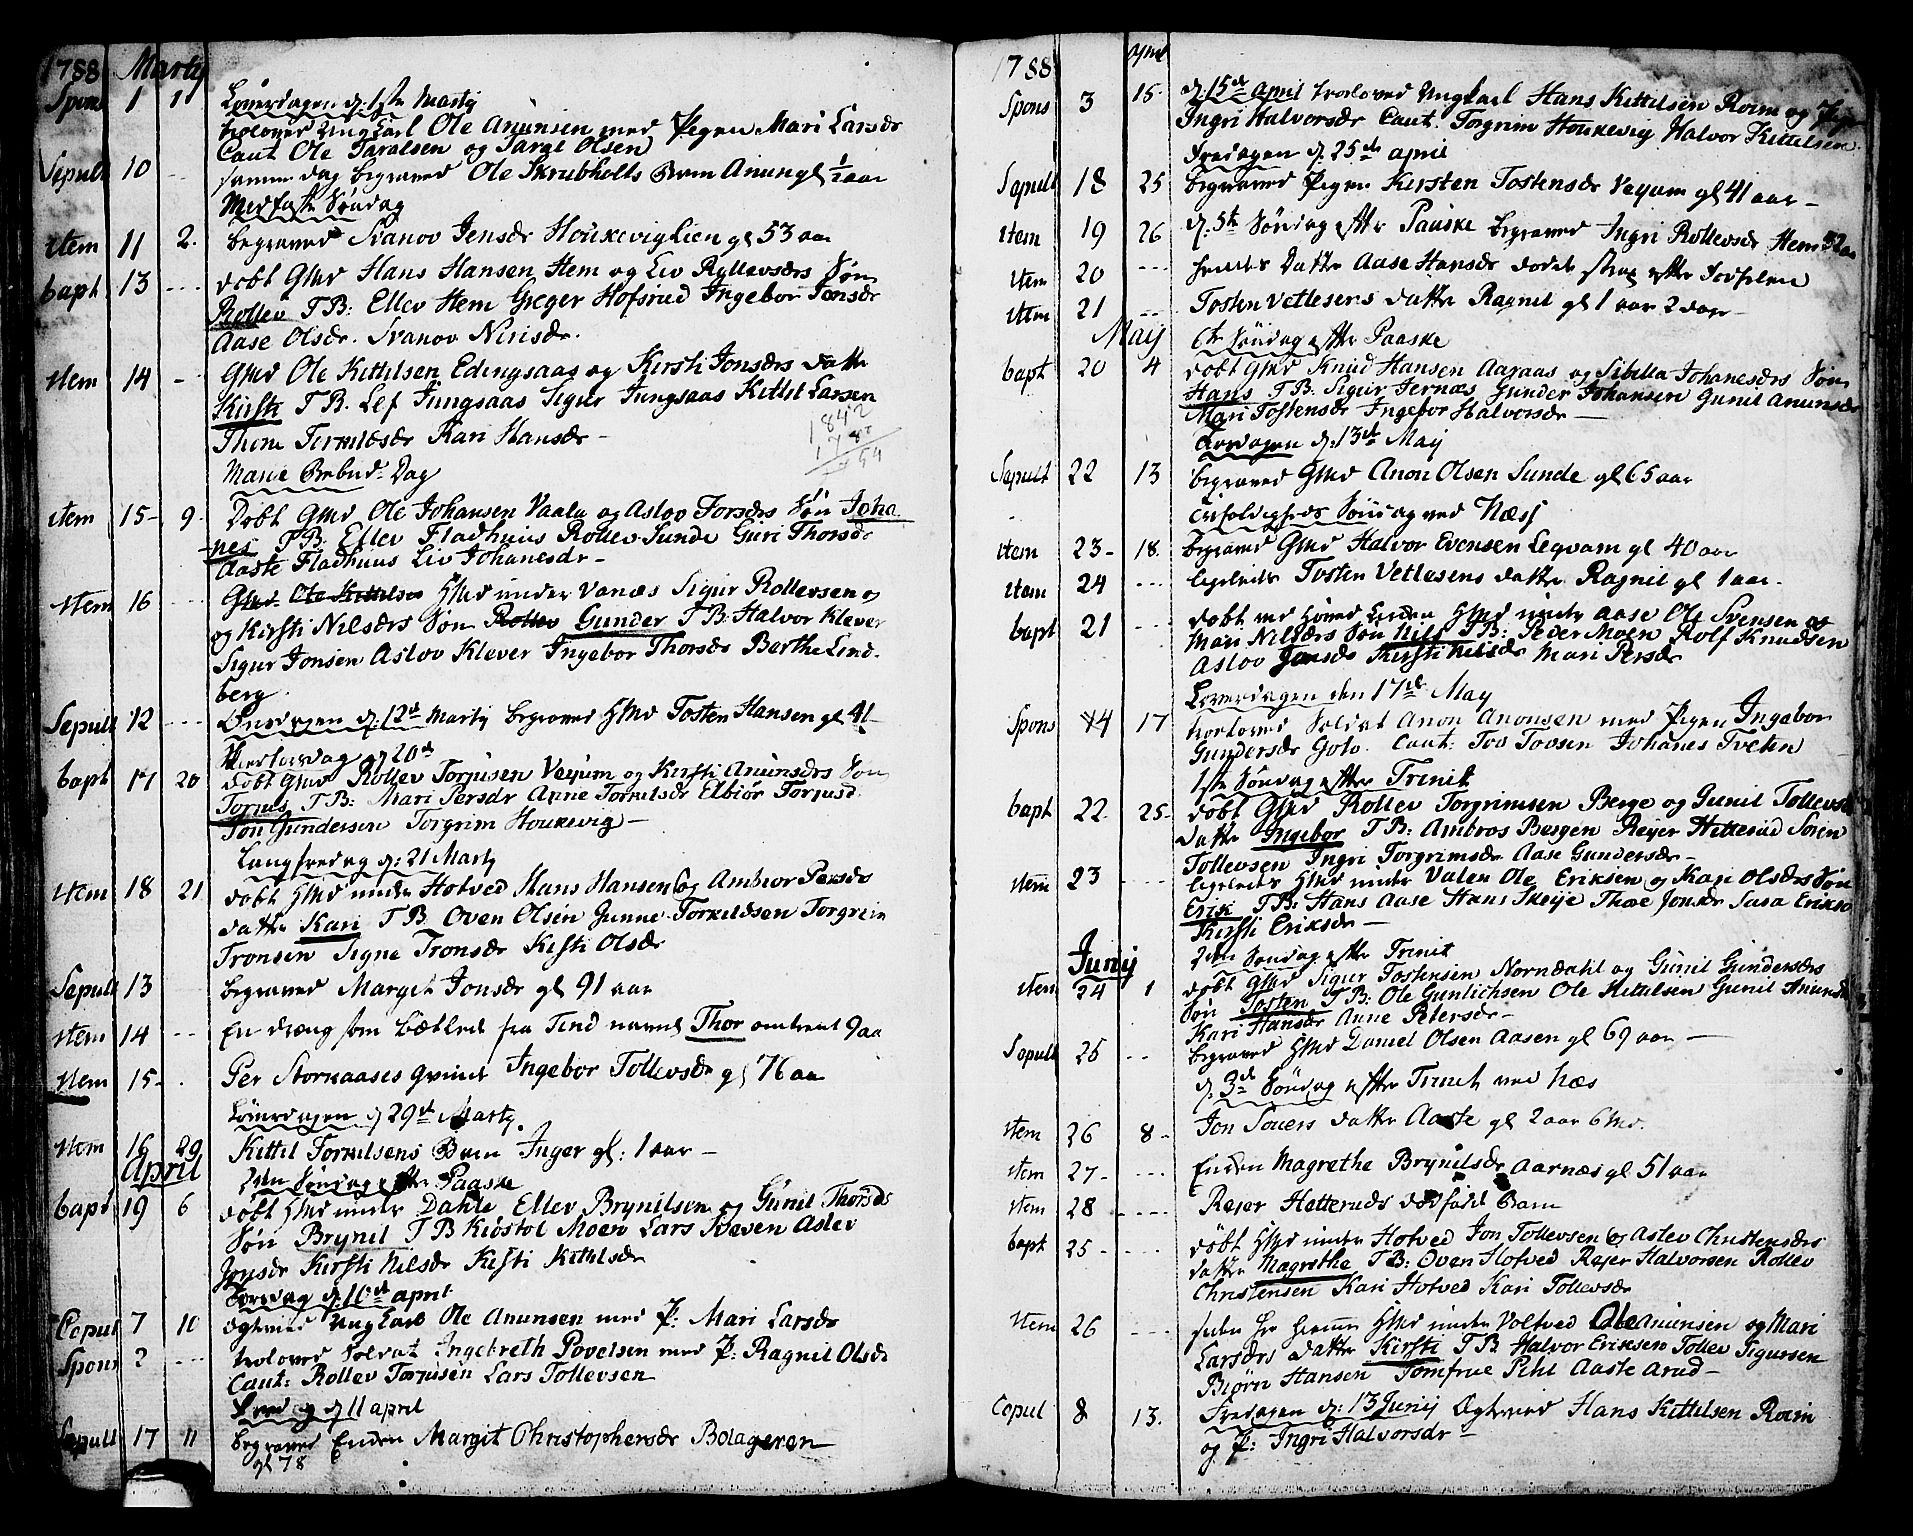 1788 Martij
Spons 1 1 Løverdagen d: 1ste Martij
trolovet Ungkarl Ole Anunsen med Pigen Mari Larsdr
Caut Ole Taralsen og Taral Olsen
Sepult 10 -- samme dag begravet Ole Skrubholts Barn Anun gl 1/2 aar
Midfaste Søndag
item 11 2. begravet Svanov Jensdr Houkeviglien gl 53 aar
bapt 13 --- døbt Gmd Hans Hansen Hem og Liv Rollevsdrs Søn
Rollev T B: Ellev Hem Greger Hofsrud Ingebor Jonsdr
Aase Olsdr. Svanov Nirisdr.
item 14 - Gmd Ole Kittilsen Edingsaas og Kirsti Jonsdrs datter
Kirsti T B. Lef Jungsaas Sigur Jungsaas Kittil Larsen
Thore Torkildsdr Kari Hansdr -
1842
1788
54
Marie Bebud: Dag
item 15- 9- Døbt Gmd Ole Johansen Vaala og Aslov Torsdrs Søn Joha
-nes T B: Ellev Fladhuus Rollev Sunde Guri Thorsdr
Aaste Fladhuus Liv Johanesdr -
item 16 --- Gmd Ole Kittilsen Hmd under Vanæs Sigur Rollevsen og
og Kirsti Nilsdrs Søn Rollev Gunder T B: Halvor Klever
Sigur Jonsen Aslov Klever Ingebor Thorsdr Berthe Lind-
berg.
Sepult 12 --- Onsdagen d: 12te Martij begravet Hmd Tosten Hansen gl 41
Skiertorsdag d 20de
bapt 17 20 døbt Gmd Rollev Torjusen Vejum og Kirsti Anunsdrs Søn
Torjus T B: Mari Persdr Anne Torkilsdr Elbiør Torjusd.
Jon Gundersen Torgrim Houkevig -
Langfredag d: 21 Martij
item 18 21 døbt Hmd under Hotved Hans Hansen og Ambior Persdrs
datter Kari T B Oven Olsen Gunne Torkildsen Torgrim
Tronsen Signe Tronsdr Kisti Olsdr
Sepult 13 begravet Margit Jonsdr gl 91 aar
item 14 -- En dreng som bettlet fra Tind navnl Thor omtrent 9 aar
item 15- - Per Storkaases qvinde Ingebor Tollevsdr gl 76 aar
Løverdagen d 29de Martij
item 16 29 Kittil Torkilsens Barn Inger gl: 1 aar -
April
2den Søndag efter Paaske
bapt 19 6 døbt Hmd under Dahle Ellev Brynilsen og Gunil Thorsdrs
Søn Brynil T B Kiøstol Moen Lars Sveven Aslov
Jonsdr Kirsti Nilsdr Kisti Kittilsdr
Torsdag d: 10de april
Copul 7 10 Egteviet Ungkarl Ole Anunsen med P: Mari Larsdr
Spons 2 --- trolovet Soldat Ingebreth Povelsen med P: Ragnil Olsdr
Caut: Rollev Torjusen Lars Tollevsen
Fredag d 11 april
Sepult 17 11 begravet Enken Margit Christophersdr Bolageren
gl 78
1788 April
Spons 3 15- d: 15de April trolovet Ungkarl Hans Kittilsen Roim og Pigen
Ingri Halvorsdr Caut. Torgrim Houkevig Halvor Kittilsen.
Fredagen d: 25de april
Sepult 18 25 begravet Pigen Kirsten Tostensdr Vejum gl 41 aar -
item 19 26 d: 5te Søndag efter Paaske begravet Ingri Rollevsdr Hem 32 aar
item 20 --- hendes datter Aase Hansdr døde strax efter fødselen
item 21 -- Tosten Vetlesens datter Ragnil gl 1 aar 2 dage -
May 6te Søndag efter Paaske
bapt 20 4 døbt Gmd Knud Hansen Aaraas og Sibilla Johanesdrs Søn
Hans T B: Sigur Jernæs Gunder Johansen Gunil Anunsdr
Mari Tostensdr Ingebor Halvorsdr -
Tirsdagen d: 13de May
Sepult 22 13 begravet Gmd Anon Olsen Sunde gl 65 aar
Trefoldigheds Søndag ved Næss
item 23- 18. begravet Gmd Halvor Evensen Legvam gl 40 aar
item 24 --- ligeledes Tosten Vetlesens datter Ragnil gl 1 aar.
bapt 21 --- døbt ved Hoved Kirken Hmd under Aase Ole Svensen og
Mari Nilsdrs Søn Nils T B: Peder Moen Rolf Knudsen
Aslov Jonsdr Kirsti Nilsdr Mari Persdr
Løverdagen den 17de May
Spons 4 17 trolovet Soldat Anon Anonsen med Pigen Ingebor
Gundersdr Goto. Caut: Tov Tovsen Johanes Tveten
1ste Søndag efter Trinit
bapt 22. 25- døbt Gmd Rollev Torgrimsen Berge og Gunil Tollevsdrs
datter Ingebor T B: Ambros Bergen Rejer Hetterud Soren
Tollevsen Ingri Torgrimsdr Aase Gundersdr -
item 23 --- ligeledes Hmd under Valen Ole Eriksen og Kari Olsdrs Søn
Erik T B: Hans Aase Hans Skeje Thoe Jonsdr Sara Eriksd
Kirsti Eriksdr -
Junij 2den Søndag efter Trinit
item 24 1 døbt Gmd Sigur Tostensen Nordahl og Gunil Gundersdrs
Søn Tosten T B: Ole Gunlichsen Ole Kittilsen Gunil Anunsd
Kari Hansdr Anne Petersdr -
Sepult 25 -- begravet Hmd Daniel Olsen Aasen gl 69 aar -
d: 3de Søndag efter Trinit ved Næs
item 26 8- Jon Souers datter Aaste gl 2 aar 6 Md.
item 27- --- Enken Magrethe Brynilsdr Aarnæs gl 51 aar
item 28 ---- Rejer Hetteruds dødfød Barn
bapt 25- --- døbt Hmd under Hotved Jon Tollevsen og Aslov Christensdrs
datter Magrethe T B: Oven Hotved Rejer Halvorsen Rollev
Christensen Kari Hotved Kari Tollevsdr
item 26 --- Hmd under Voltved Ole Anunsen og Mari
Larsdrs datter Kirsti T B Halvor Eriksen Tollev Sigursen
Biørn Hansen Jomfrue Pihl Aaste Arud -
Copul 8 13. Fredagen d: 13 Junij Egteviet Hans Kittilsen Roim
og P: Ingri Halvorsdr -